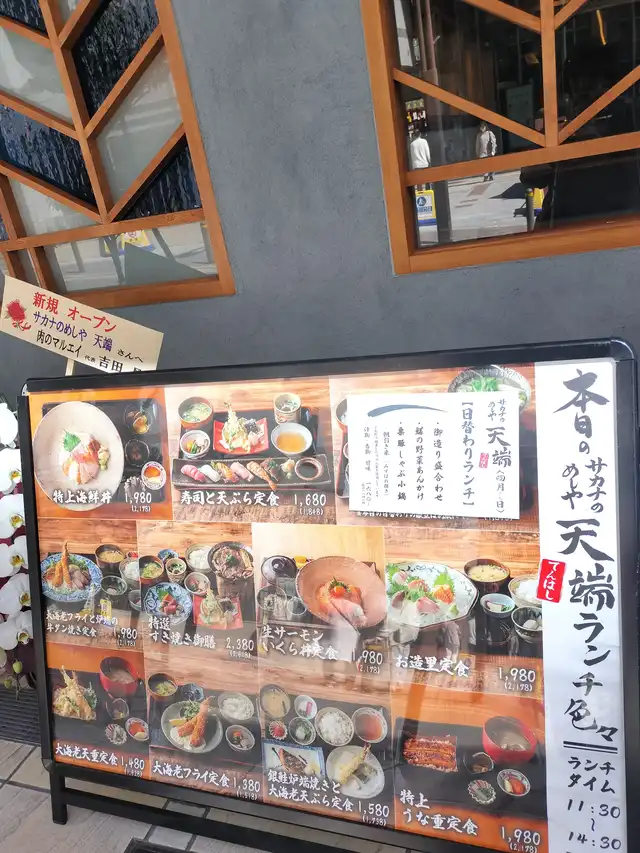 新規 オープン
サカナのめしや 天端 さんへ
肉のマルエイ 代表 吉田
本日の
サカナの
めしや
天端
てんぱし
ランチ色々
ランチ
タイム
11:30
〜
14:30
サカナの
めしや
天端
【日替わりランチ】
・御造り盛合せ
・鮮の野菜あんかけ
・豚しゃぶ小鍋
特上海鮮丼 1,980
寿司と天ぷら定食 1,680
(1,848)
大海老フライと炉端の
牛タン定食 1,980
特選
すき焼き御膳 2,380
生サーモン
いくら丼定食 1,980
(2,178)
お造里定食 1,980
(2,178)
大海老天重定食 1,480
大海老フライ定食 1,380
銀鮭炉端焼きと
大海老天ぷら定食 1,580
(1,738)
特上
うな重定食 1,980
(2,178)